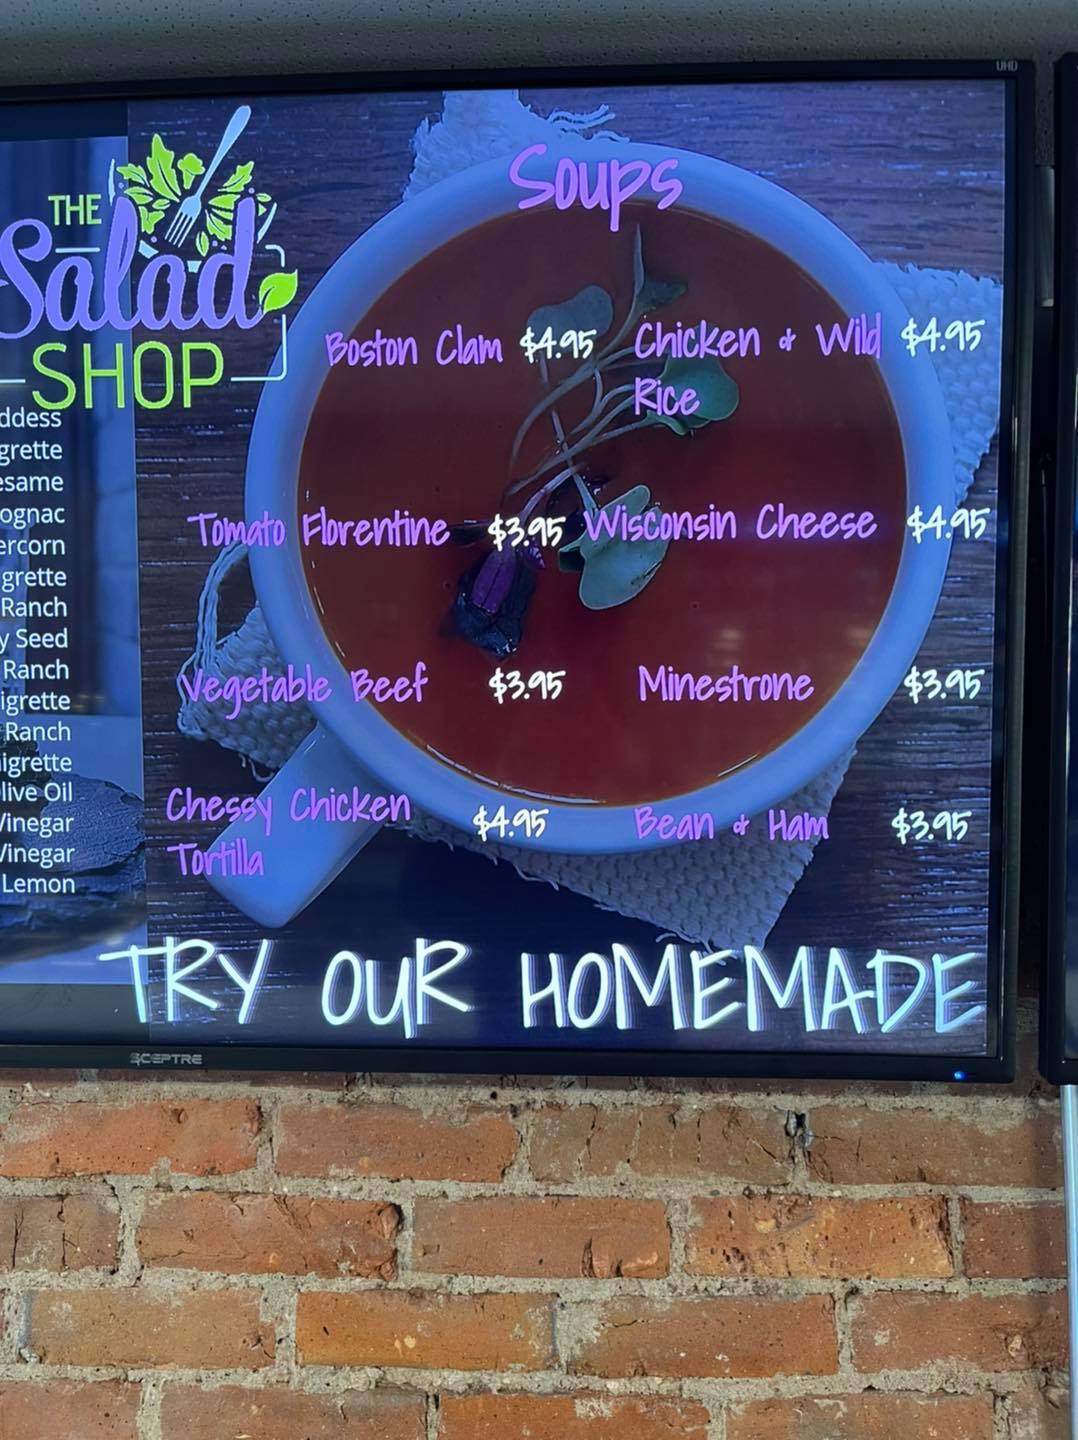 UHD
THE
Salad
SHOP
Soups
Boston Clam $4.95
Chicken & Wild $4.95
Rice
Tomato Florentine $3.95
Wisconsin Cheese $4.95
Vegetable Beef $3.95
Minestrone $3.95
Chessy Chicken $4.95
Tortilla
Bean & Ham $3.95
TRY OUR HOMEMADE
ddess
grette
esame
ognac
ercorn
grette
Ranch
y Seed
Ranch
igrette
Ranch
igrette
live Oil
Vinegar
Vinegar
Lemon
SCEPTRE